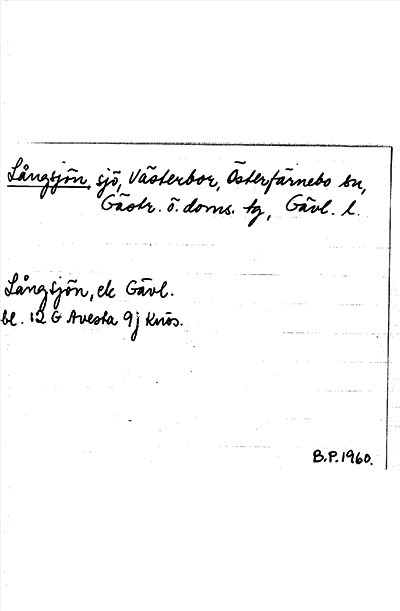 Långsjön, sjö, Västerbor, Österfärnebo sn,
Gästr. ö. doms. tg, Gävl. l.
Långsjön, ek Gävl.
bl. 12 G Avesta 9j Knös.
B.P. 1960.